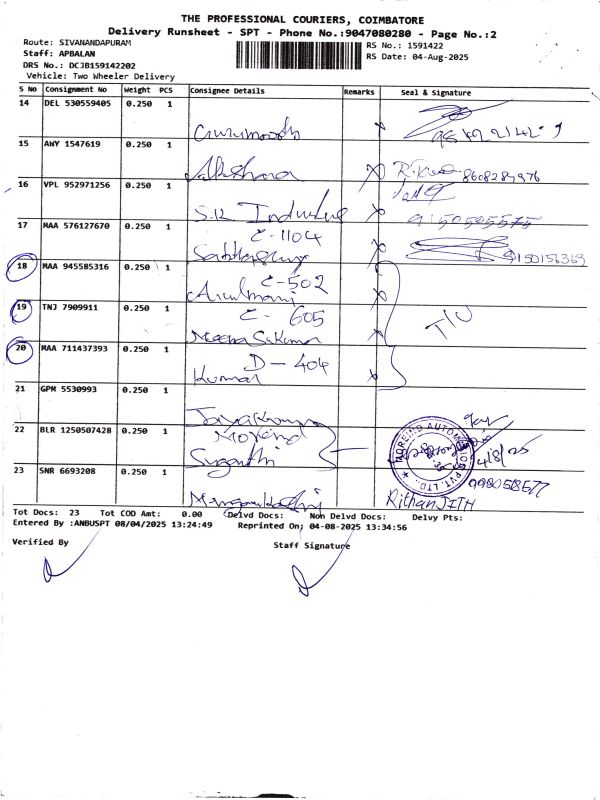 THE PROFESSIONAL COURIERS, COIMBATORE
Delivery Runsheet - SPT - Phone No.:9047080280 - Page No.:2
Route: SIVANANDAPURAM
Staff: APBALAN
DRS No.: DCJB159142202
Vehicle: Two Wheeler Delivery
RS No.: 1591422
RS Date: 04-Aug-2025
S No Consignment No Weight PCS Consignee Details Remarks Seal & Signature
14 DEL 530559405 0.250 1
Gurumoorthy
15 AWY 1547619 0.250 1
8608284976
16 VPL 952971256 0.250 1
S.K
9150585575
17 MAA 576127670 0.250 1
E-1104
9150156369
18 MAA 945585316 0.250 1
E-502
Arulmani
19 TNJ 7909911 0.250 1
E- 605
20 MAA 711437393 0.250 1
D-404
Kumar
21 GPM 5530993 0.250 1
22 BLR 1250507428 0.250 1
Moreind
Suganthi
MOREIND AUTOMATION PVT. LTD.
4/8/25
23 SNR 6693208 0.250 1
RithanJITH
Tot Docs: 23 Tot COD Amt: 0.00 Delvd Docs: Non Delvd Docs: Delvy Pts:
Entered By :ANBUSPT 08/04/2025 13:24:49 Reprinted On; 04-08-2025 13:34:56
Verified By Staff Signature